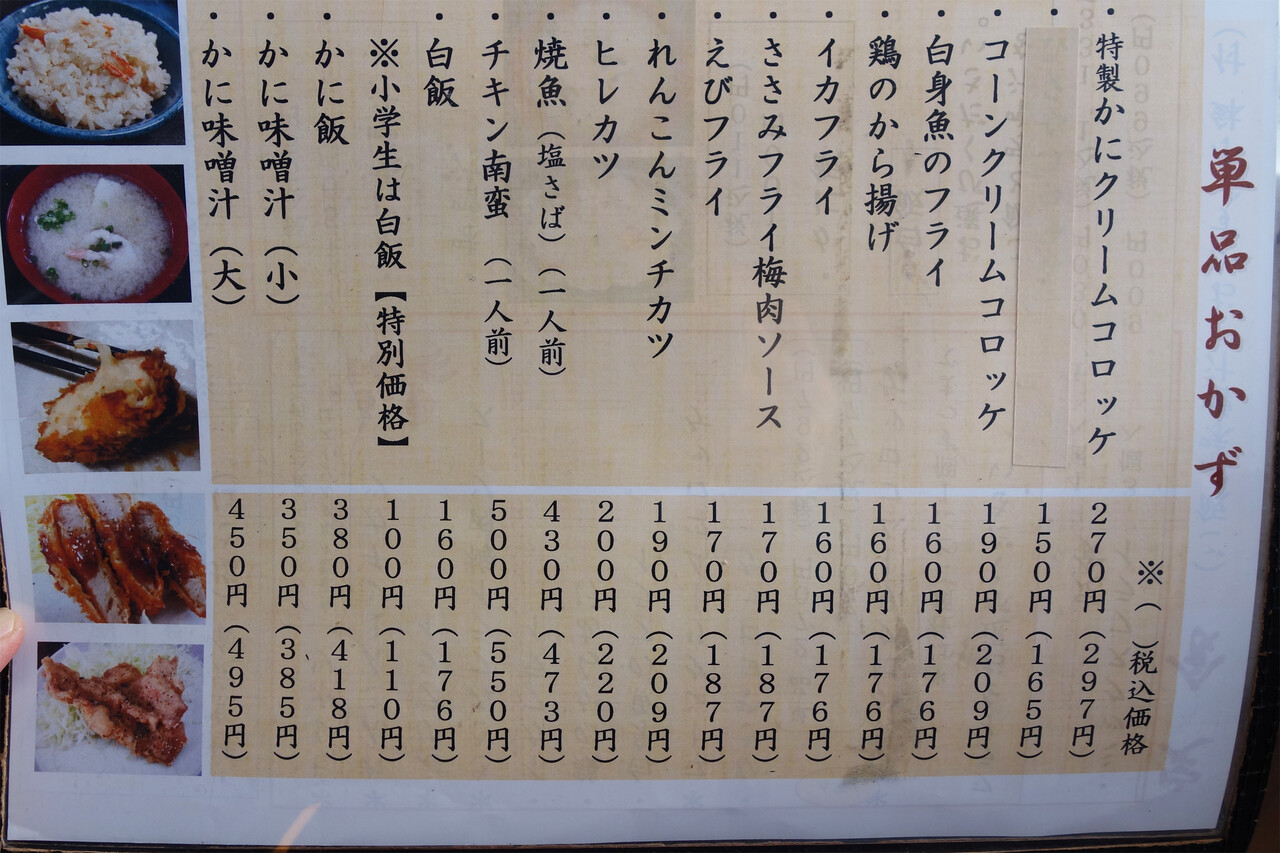 単品おかず
※（　）税込価格
・特製かにクリームコロッケ 270円（297円）
・ 150円（165円）
・コーンクリームコロッケ 190円（209円）
・白身魚のフライ 160円（176円）
・鶏のから揚げ 160円（176円）
・イカフライ 160円（176円）
・ささみフライ梅肉ソース 170円（187円）
・えびフライ 170円（187円）
・れんこんミンチカツ 190円（209円）
・ヒレカツ 200円（220円）
・焼魚（塩さば）（一人前） 430円（473円）
・チキン南蛮（一人前） 500円（550円）
・白飯 160円（176円）
※小学生は白飯【特別価格】 100円（110円）
・かに飯 380円（418円）
・かに味噌汁（小） 350円（385円）
・かに味噌汁（大） 450円（495円）